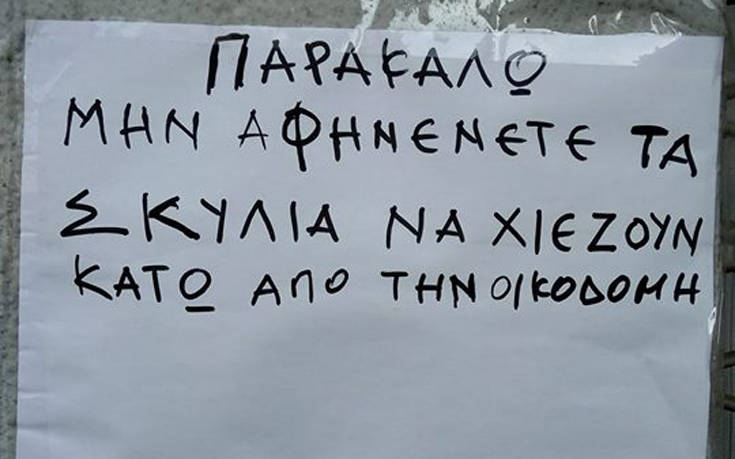 ΠΑΡΑΚΑΛΩ
ΜΗΝ ΑΦΗΝΕΝΕΤΕ ΤΑ
ΣΚΥΛΙΑ ΝΑ ΧΙΕΖΟΥΝ
ΚΑΤΩ ΑΠΟ ΤΗΝ ΟΙΚΟΔΟΜΗ